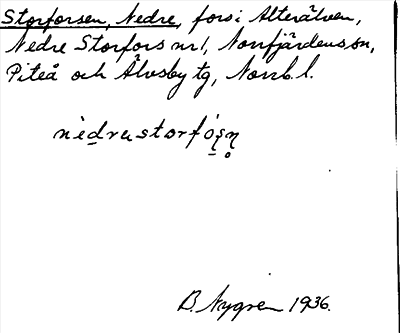 Storforsen, Nedre, fors i Alterälven,
Nedre Storfors nr 1, Norrfjärdens sn,
Piteå och Älvsby tg, Norrb. l.
nèdrɐstorfóṣṇ
B. Nygren 1936.